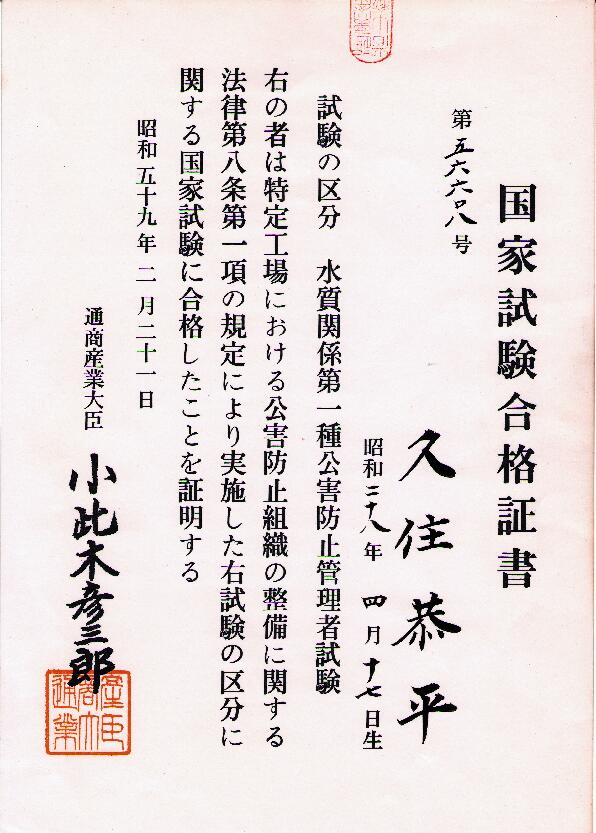 国家試験合格証書
第五六六〇八号
久住恭平
昭和二十八年 四月十七日生
試験の区分 水質関係第一種公害防止管理者試験
右の者は特定工場における公害防止組織の整備に関する
法律第八条第一項の規定により実施した右試験の区分に
関する国家試験に合格したことを証明する
昭和五十九年二月二十一日
通商産業大臣 小此木彦三郎
通商産業大臣